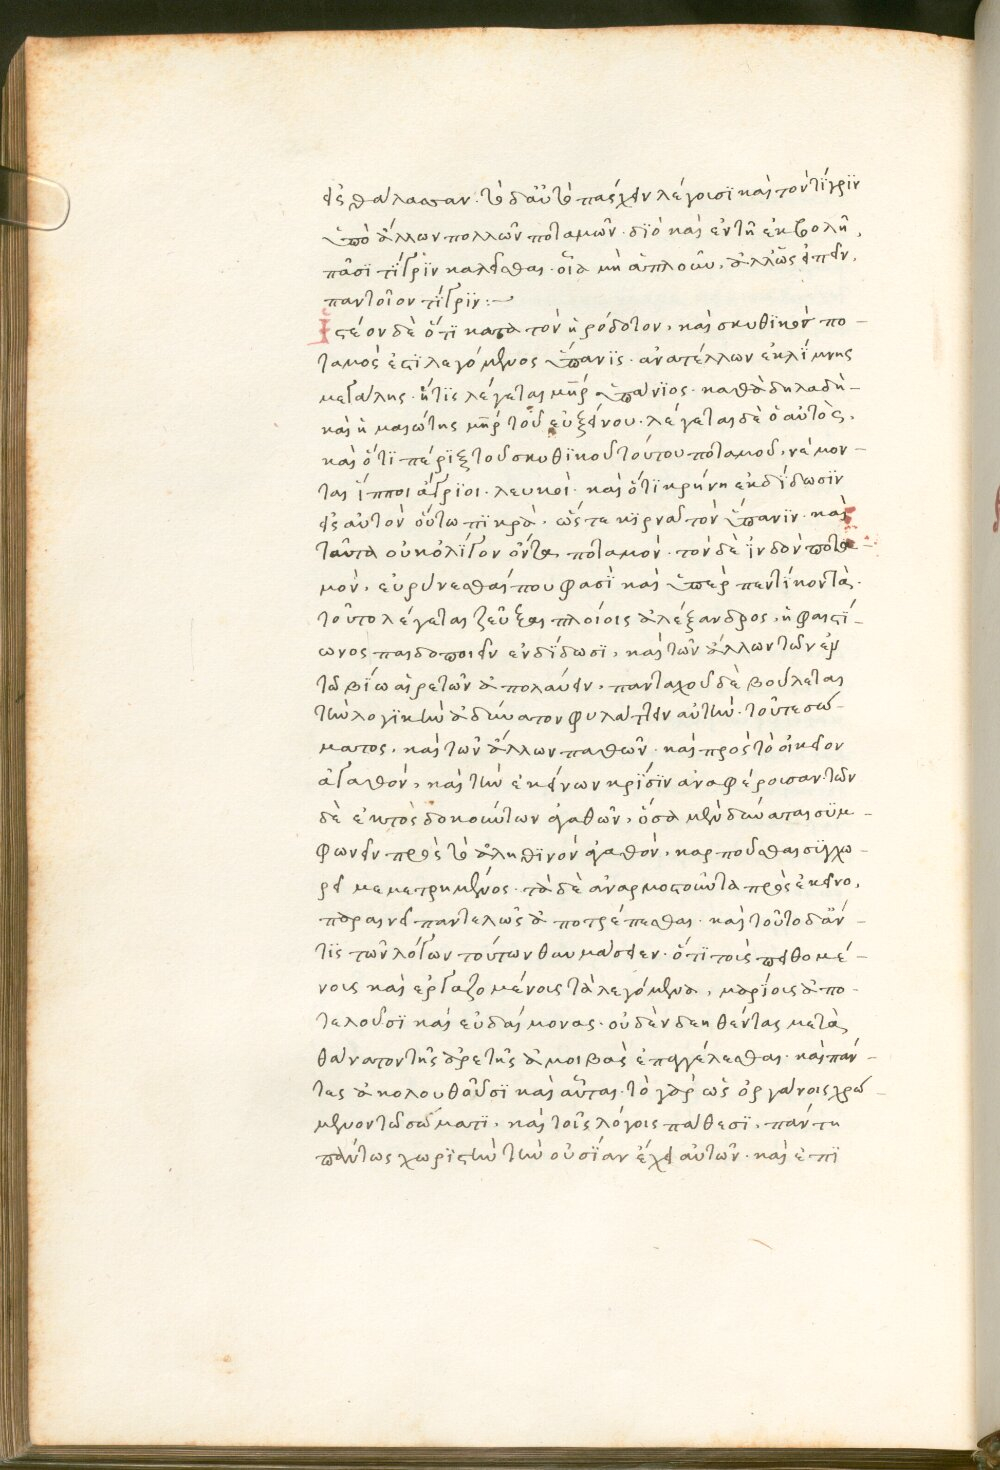 εἰς θάλασσαν. τὸ δ' αὐτὸ πάσχειν λέγουσϊ καὶ τὸν τίγρϊν
ὑπὸ ἄλλων πολλῶν ποταμῶν. δϊὸ καὶ ἐν τῇ ἐκβολῇ,
πᾶσϊ τίγρϊν καλεῖσθαι. οἷα μὴ ἁπλοῦν, ἀλλ' ὡς εἰπεῖν,
παντοῖον τίγρϊν:
Ἰστέον δὲ ὅτϊ κατα τὸν ἡρόδοτον, καὶ σκυθϊκὸν πο-
ταμὸς ἐστϊ λεγόμενος ὕπανϊς. ἀνατέλλων ἐκ λίμνης
μεγάλης. ἥτϊς λέγεται μηρ ὑπάνϊος. καθὰ δηλαδὴ-
καὶ ἡ μαιώτης μηρ τοῦ εὐξείνου. λέγεται δὲ ὁ αὐτὸς,
καὶ ὅτϊ πέριξ τοῦ σκυθϊκοῦ τούτου ποταμοῦ, νέμον-
ται ἵπποι ἄγρϊοι. λευκοὶ. καὶ ὅτϊ κρήνη ἐκδίδωσϊν
εἰς αὐτὸν οὕτω πϊκρὰ. ὥς τε κϊρνᾶ τὸν ὕπανϊν. καὶ
ταῦτα οὐκ ὀλίγον ὄντα ποταμὸν. τὸν δὲ ἰνδὸν ποτα-
μὸν, εὐρύνεσθαί που φασϊ καὶ ὑπὲρ πεντίκοντα.
τοῦτο λέγεται ζεῦξαι πλοίοις ἀλέξανδρος, ἡφαιστί-
ωνος παιδοποιεῖν ἐνδίδωσϊ, καὶ τῶν ἄλλων τῶν ἐν
τῶ βίω αἱρετῶν ἀπολαύειν, πανταχοῦ δὲ βούλεται
τὴν λογϊκὴν ἀδύνατον φυλάττειν αὐτὴν. τοῦτε σώ-
ματος, καὶ τῶν ἄλλων παθῶν. καὶ πρὸς τὸ οἰκεῖον
ἀγαθὸν, καὶ τὴν ἐκείνων κρίσϊν ἀναφέρουσαν. τῶν
δὲ ἐκτὸς δοκούντων ἀγαθῶν, ὅσα μὲν δύναται συμ-
φωνεῖν πρὸς τὸ ἀληθϊνὸν ἀγαθὸν, καρποῦσθαι συγχω-
ρεῖ μεμετρημένως. τὰ δὲ ἀναρμοστοῦντα πρὸς ἐκεῖνο,
παραινεῖ παντελῶς ἀποτρέπεσθαι. καὶ τοῦτο δ' ἄν-
τϊς τῶν λόγων τούτων θαυμάσειεν. ὅτϊ τοῖς πειθομέ-
νοις καὶ ἐργαζομένοις τὰ λεγόμενα, μαρίοις ἀπο-
τελοῦσϊ καὶ εὐδαίμονας. οὐδὲν δεηθέντας μετὰ
θάνατον τῆς ἀρετῆς ἀμοιβὰς ἐπαγγέλεσθαι. κᾂι πάν-
τες ἀκολουθοῦσϊ καὶ αὗται. τὸ γὰρ ὡς ὀργάνοις χρώ-
μενον τῶ σώματϊ, καὶ τοῖς λόγοις πάθεσϊ. πάντη
πάντως χωρϊστὴν τὴν οὐσίαν ἔχει αὐτῶν. καὶ ἐπϊ